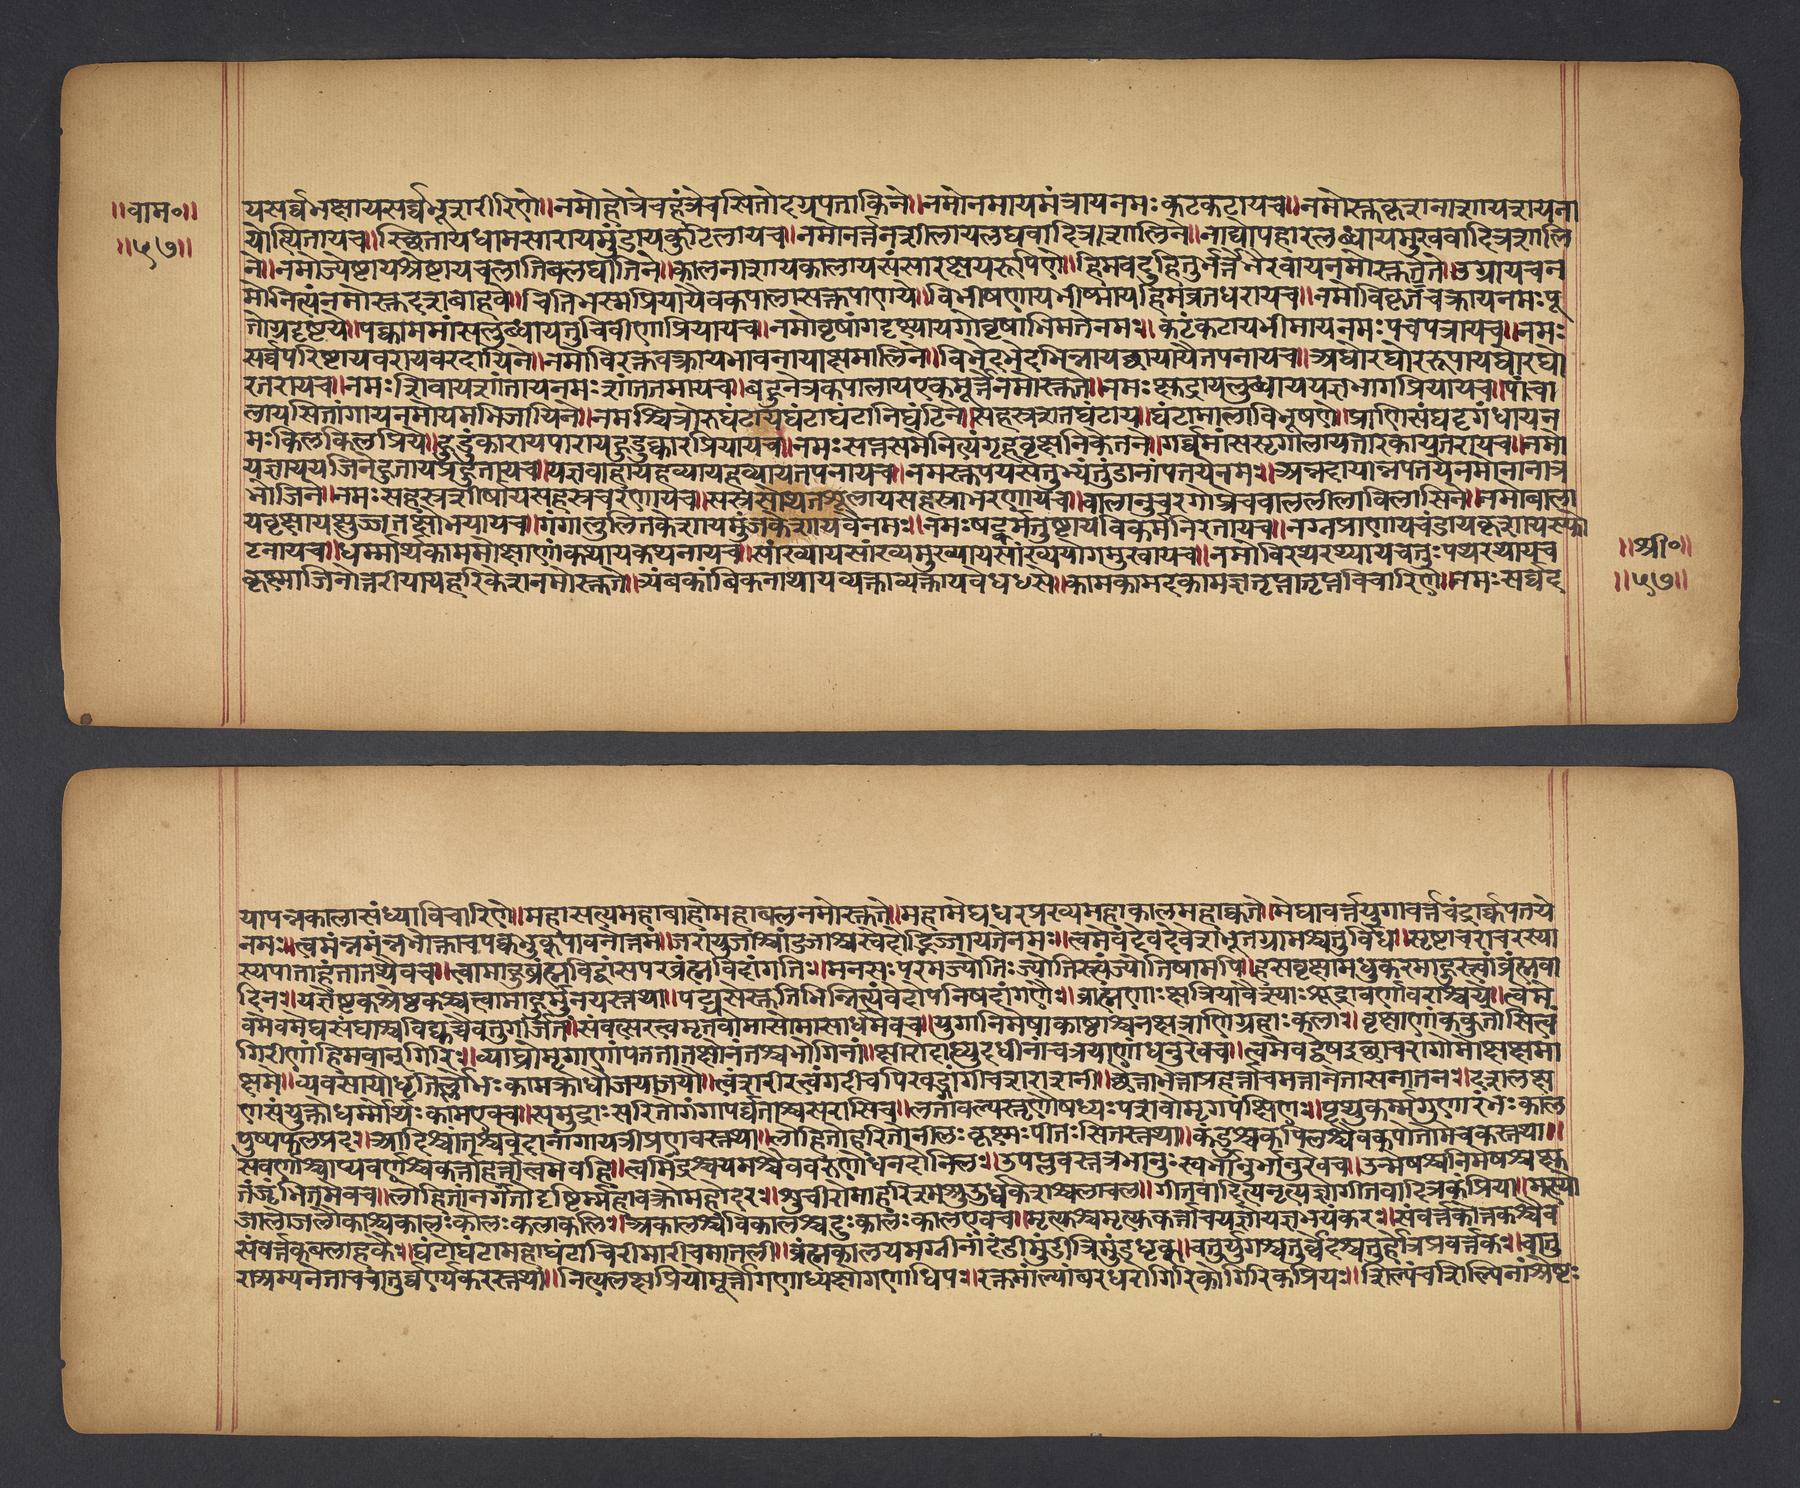 ॥वाम॰॥
॥५७॥
यसर्व्वभक्षायसर्व्वभूतशरीरिणे॥नमोहोत्रेचहंत्रेचसितोदग्रपताकिने॥नमोनमायमंत्रायनमःकटकटायच॥नमोस्तुकृशनाशायशयना
योत्थितायच॥स्थितायधामसारायमुंडायकुटिलायच॥नमोनर्त्तनशीलायलघवादित्रशालिने॥नाद्योपहारलुब्धायमुखवादित्रशालि
ने॥नमोज्येष्टायश्रेष्टायचूलातिबलघातिने॥कालनाशायकालायसंसारक्षयरूपिणे॥हिमवद्दुहितुर्भर्त्रेभैरवायनमोस्तुते॥उग्रायचन
मोनित्यंनमोस्तुदशबाहवे॥चितिभस्मप्रियायैवकपालासक्तपाणये॥विभीषणायभीष्मायहिमंव्रतधरायच॥नमोविकृतवक्त्रायनमःपू
तोग्रदृष्टये॥पक्वाममांसलुब्धायतुंबिवीणाप्रियायच॥नमोवृषांगदृष्यायगोवृषाभिमतेनमः॥कटंकटायभीमायनमःपचपचायच॥नमः
सर्व्वपरिष्टायवरायवरदायिने॥नमोविरक्तवक्त्रायभावनायाक्षमालिने॥विभेदभेदभिन्नायछायायैतपनायच॥अघोरघोररूपायघोरघो
रतरायच॥नमःशिवायशांतायनमःशांततमायच॥बहुनेत्रकपालायएकमूर्त्तेनमोस्तुते॥नमःक्षुद्रायलुब्धाययज्ञभागप्रियायच॥पांचा
लायसितांगायनमोयमभिजायिने॥नमश्चित्रोरुघंटायघंटाघंटानिघंटिने॥सहस्रशतघंटाय॥घंटामालाविभूषणे॥प्राणिसंघदृगंधायन
मःकिलकिलप्रिये॥हुहुंकारायपारायहुहुक्कारप्रियायच॥नमःसप्तसमेनित्यंगृहवृक्षनिकेतने॥गर्व्वमांससृगालायतारकायतरायच॥नमो
यज्ञाययजिनेहुतायप्रहुतायच॥यज्ञवाहायहव्यायहव्यायतपनायच॥नमस्तुपयसेतुभ्यंतुंडानांपतयेनमः॥अन्नदायान्नपतयेनमोनानात्र
भोजिने॥नमःसहस्रशीर्षायसहस्रचरणायच॥सहस्रोद्यतशूलायसहस्राभरणायच॥बालानुचरगोप्त्रेचबाललीलाविलासिने॥नमोबाला
यवृक्षायक्षुब्धायक्षोभयायच॥गंगालुलितकेशायमुंजकेशायवैनमः॥नमःषट्कर्मतुष्टायविकर्मनिरतायच॥नग्नप्राणायचंडायकृशायस्फो
टनायच॥धर्म्मार्थकाममोक्षाणांकथ्यायकथनायच॥सांख्यायसांख्यमुख्यायसांख्ययोगमुखायच॥नमोविरथ्यरथ्यायचतुःपथरथायच
कृष्णाजिनोत्तरीयायहरिकेशनमोस्तुते॥त्र्यंबकांबिकनाथायव्यक्ताव्यक्तायवेधसे॥कामकामदकामघ्नतृप्तातृप्तविचारिणे॥नमःसर्व्वद
॥श्री॰॥
॥५७॥
यापन्नकालासंध्याविचारिणे॥महासत्यमहाबाहोमहाबलनमोस्तुते॥महामेघधरप्रख्यमहाकालमहाद्युते॥मेघावर्त्तयुगावर्त्तचंद्रार्कपतये
नमः॥त्वमन्नमन्नभोक्ताचपक्वभुक्पावनोत्तम॥जरायुजाश्चांडजाश्चस्वेदोद्भिज्जायतेनमः॥त्वमेवदेवदेवेशभूतग्रामश्चतुर्विधः॥सृष्टाचराचरस्या
स्यपाताहंतातथैवच॥त्वामाहुर्ब्रह्मविद्वांसपरब्रह्मविदांगतिः॥मनसःपरमज्योतिःज्योतिस्त्वंज्योतिषामपि॥हंसवृक्षमधुकरमाहुस्त्वांब्रह्मवा
दिनः॥यजुष्टकश्रेष्ठकश्चत्वामाहुर्मुनयस्तथा॥पद्यसेस्तुतिभिन्नित्यंवेदोपनिषदांगणैः॥ब्राह्मणाःक्षत्रियावैश्याःशूद्रावर्णावराश्चये॥त्वमे
वमेवमेघसंघाश्चविद्युच्चैवतुगर्जितं॥संवत्सरत्वमृतवोमासोमासार्धमेवच॥युगानिमेषाकाष्ठाश्चनक्षत्राणिग्रहाःकलाः॥वृक्षाणांककुभोसित्वं
गिरीणांहिमवान्गिरिः॥व्याघ्रोमृगाणांपततांतार्क्षोनंतश्चभोगिनां॥क्षीरोदोह्युदधीनांचयंत्राणांधनुरेवच॥त्वमेवद्वेषइछाचरागोमोक्षक्षमा
क्षमे॥व्यवसायोधृतिर्लोभःकामक्रोधौजयाजयौ॥त्वंशरीत्वंगदीचपिखट्वांगीचशरासनी॥छेत्ताभेत्ताप्रहर्त्ताचमंतानेतासनातनः॥दशलक्ष
णसंयुक्तोधर्म्मोर्थःकामएवच॥समुद्राःसरितोगंगापर्व्वताश्चसरांसिच॥लतावल्यस्तृणौषध्यःपशवोमृगपक्षिणः॥पृथुकर्म्मगुणारंभःकाल
पुष्पफलप्रदः॥आदिश्चांतश्चवेदानांगायत्रीप्रणवस्तथा॥लोहितोहरितोनीलःकृष्णःपीतःसितस्तथा॥कद्रुश्चकपिलश्चैवकपोतोमेचकस्तथा॥
सवर्णश्चाप्यवर्णश्चकर्त्ताहर्त्तात्वमेवहि॥त्वमिंद्रश्चयमश्चैववरुणोधनदोनिलः॥उपप्लवस्चित्रभानुःस्वर्भानुर्भानुरेवच॥उन्मेषश्चनिमेषश्चक्षु
तंजृंभितमेवच॥लोहितांतर्गतोदृष्टिर्म्महावक्त्रोमहोदरः॥शुचीरोमाहरिश्मश्रुरुर्ध्वकेशश्चलाचलः॥गीतवादित्रनृत्यज्ञोगीतवादित्रकप्रियः॥मत्स्यो
जालोजलौकाश्चकालःकौलःकलाकलिः॥अकालश्चविकालश्चदुःकालःकालएवच॥मृत्युश्चमृत्युकर्त्ताचयज्ञोयज्ञभयंकरः॥संवर्त्तकोंतकश्चैव
संवर्त्तकबलाहकः॥घंटोघंटामहाघंटाचिरीमारीचमातली॥ब्रह्मकालयमग्नीनांदंडीमुंडीत्रिमुंडधृक्॥चतुर्युगश्चतुर्व्वेदश्चतुर्होत्रप्रवर्त्तकः॥चातु
राश्रम्यनेताचचातुर्व्वर्ण्यकरस्तथा॥नित्यलक्षप्रियोमूर्त्तोगणाध्यक्षोगणाधिपः॥रक्तमाल्यांबरधरोगिरिकोगिरिकप्रियः॥शिल्पंचशिल्पिनांश्रेष्टः